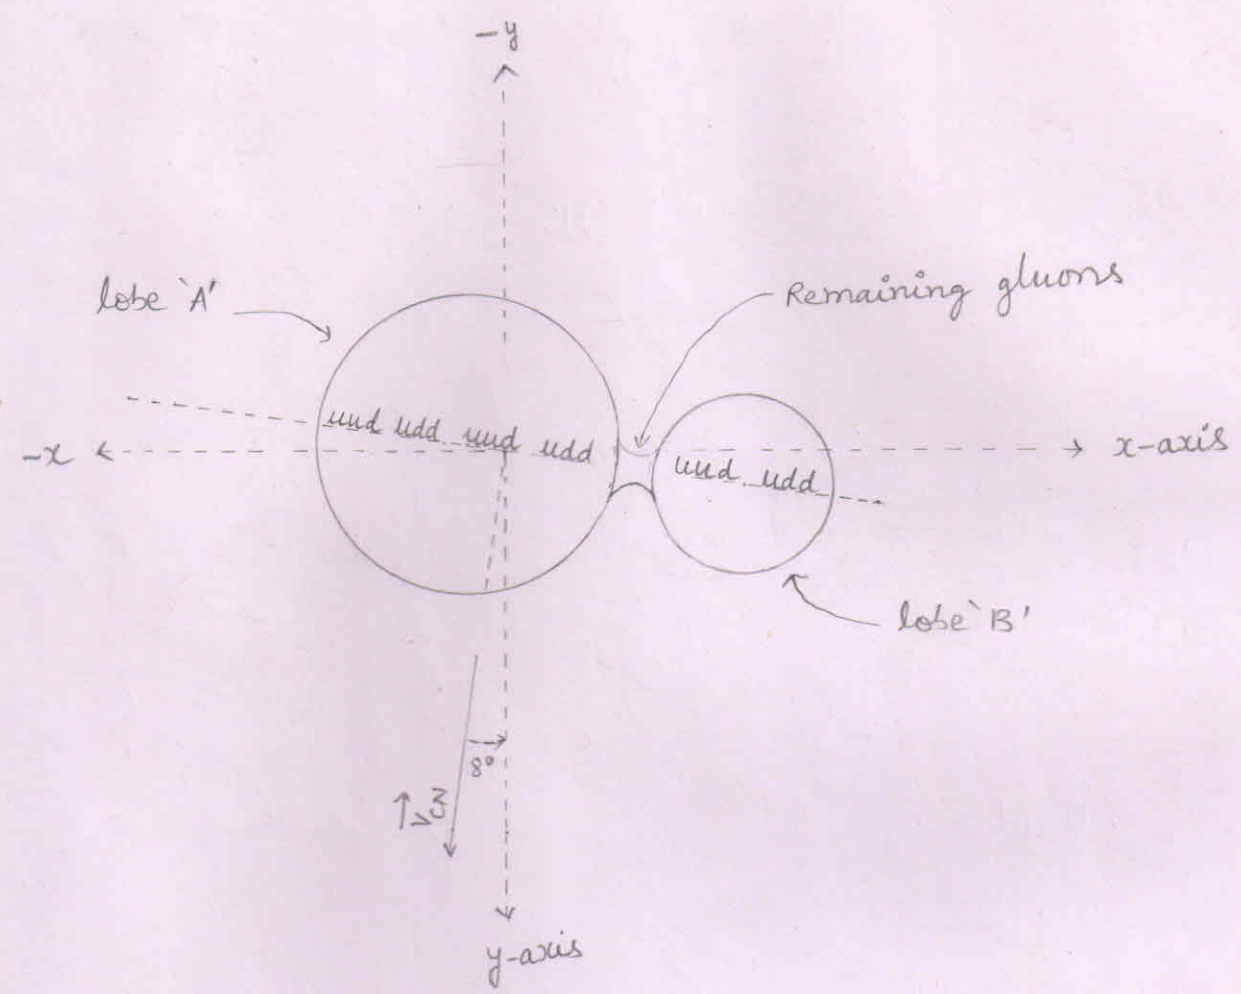 -y
lobe 'A'
Remaining gluons
uud udd uud udd
-x
x-axis
uud udd
lobe 'B'
8°
V CN
y-axis